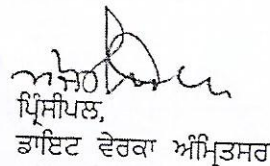 ਪ੍ਰਿੰਸੀਪਲ,
ਡਾਇਟ ਵੇਰਕਾ ਅੰਮ੍ਰਿਤਸਰ